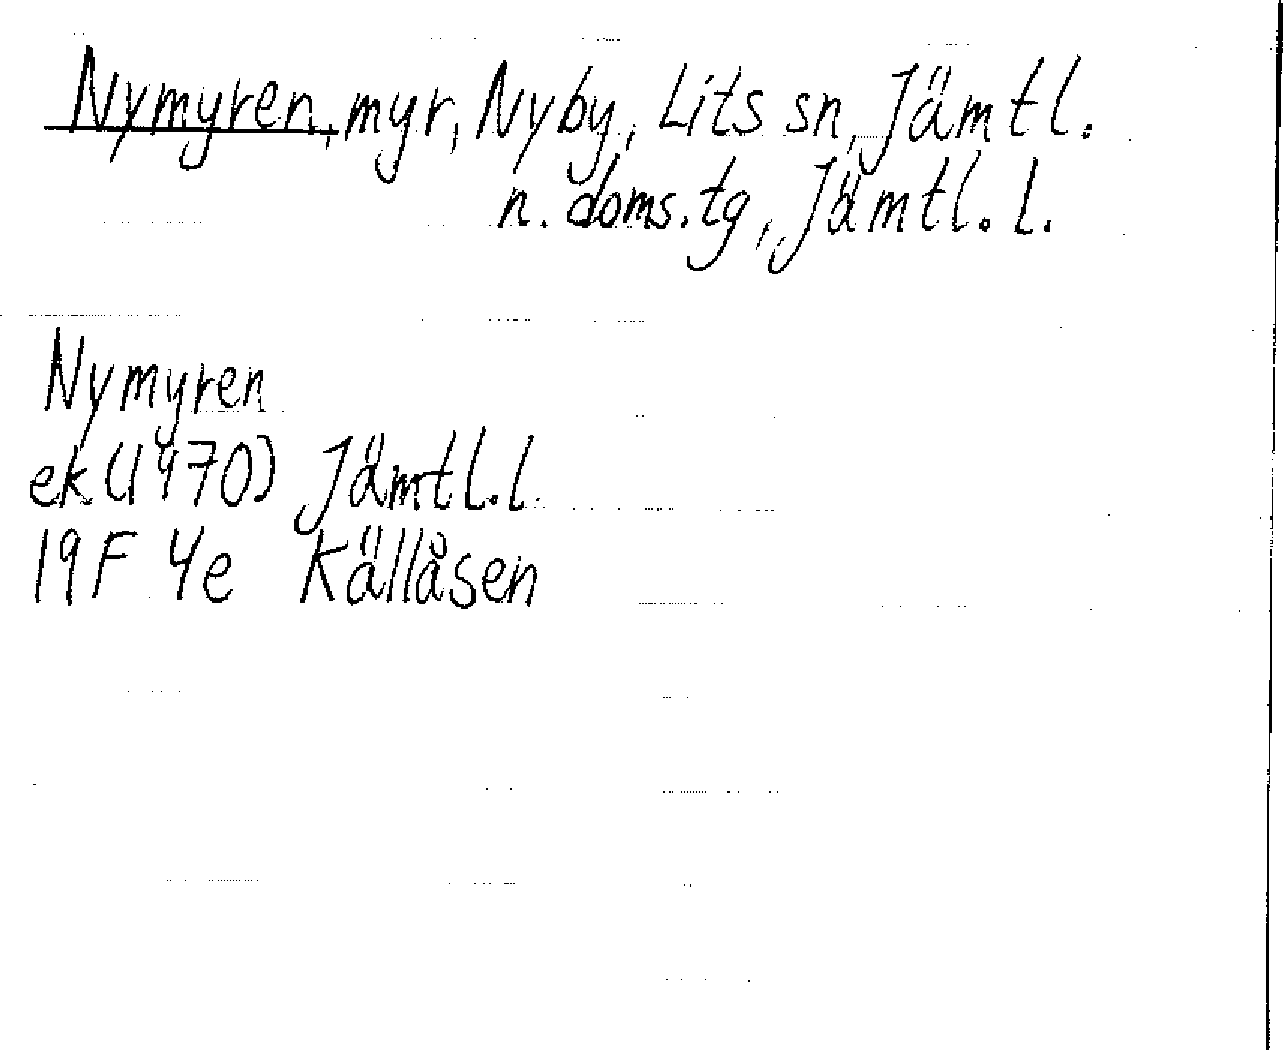 Nymyren, myr, Nyby, Lits sn, Jämtl.
n. doms.tg, Jämtl. l.
Nymyren
ek (1970) Jämtl. l.
19F 4e Källåsen